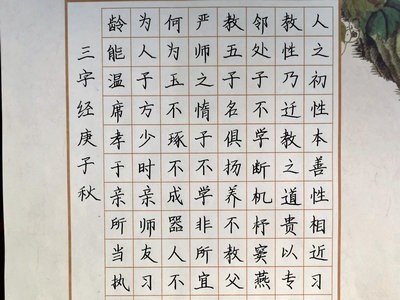 人之初性本善性相近习
教性乃迁教之道贵以专
邻处子不学断机杼窦燕
教五子名俱扬养不教父
严师之惰子不学非所宜
何为玉不琢不成器人不
为人子方少时亲师友习
龄能温席孝于亲所当执
三字经庚子秋